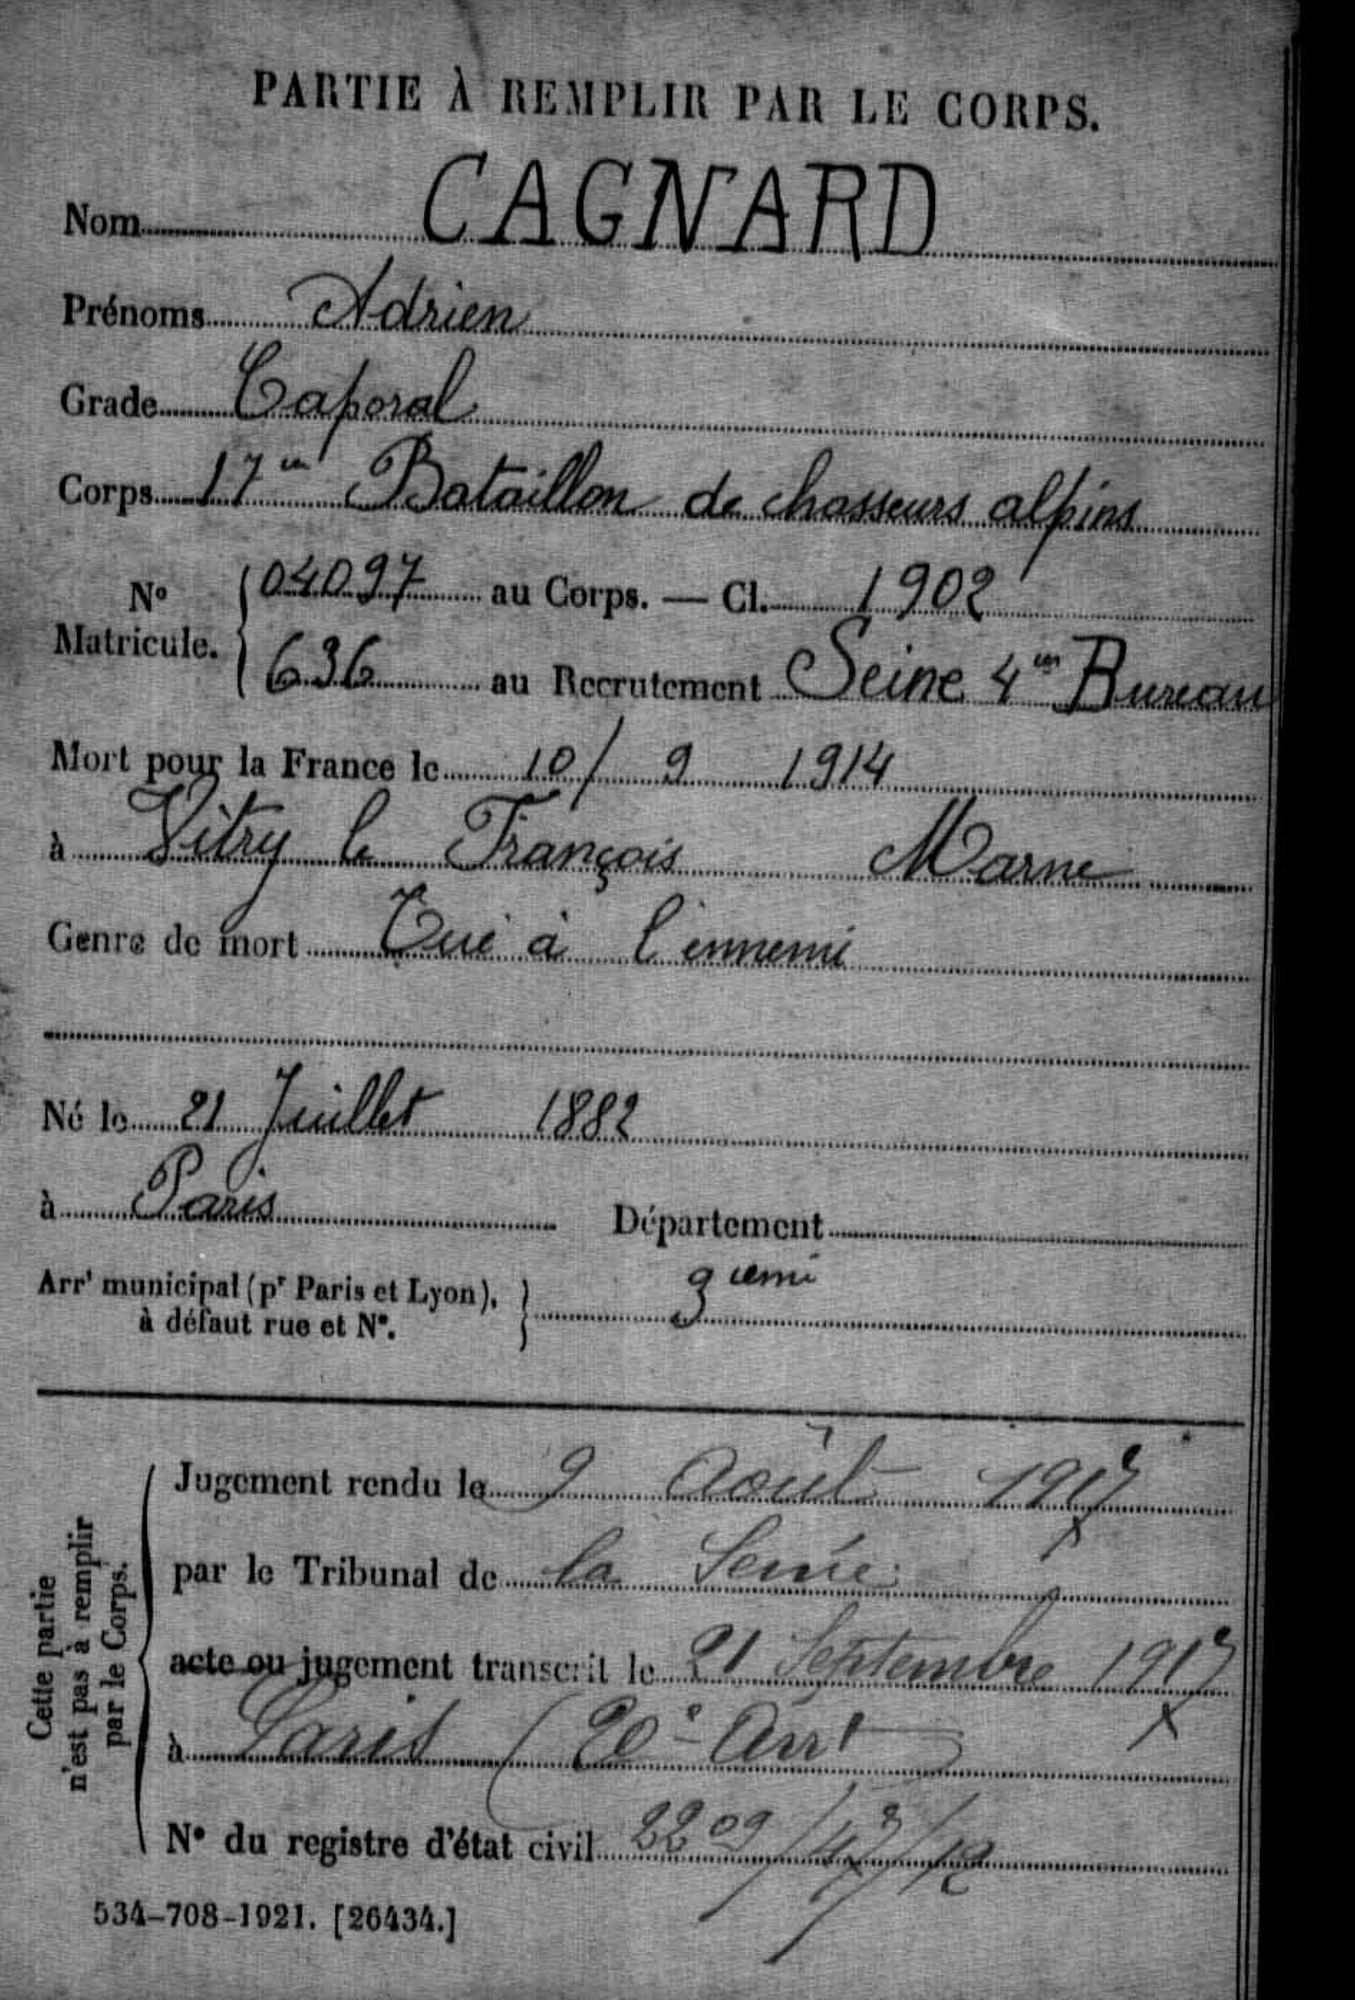 PARTIE À REMPLIR PAR LE CORPS.
Nom CAGNARD
Prénoms Adrien
Grade Caporal
Corps 17em Bataillon de chasseurs alpins
No Matricule. 04097 au Corps. — Cl. 1902
636 au Recrutement Seine 4em Bureau
Mort pour la France le 10/ 9 1914
à Vitry le François Marne
Genre de mort Tué à l'ennemi
Né le 21 Juillet 1882
à Paris Département
Arrt municipal (pr Paris et Lyon), à défaut rue et No. 3ieme
Cette partie n'est pas à remplir par le Corps.
Jugement rendu le 9 Août 1917
par le Tribunal de la Seine
acte ou jugement transcrit le 21 Septembre 1917
à Paris (20e Arrt)
No du registre d'état civil 2209/
534-708-1921. [26434.]